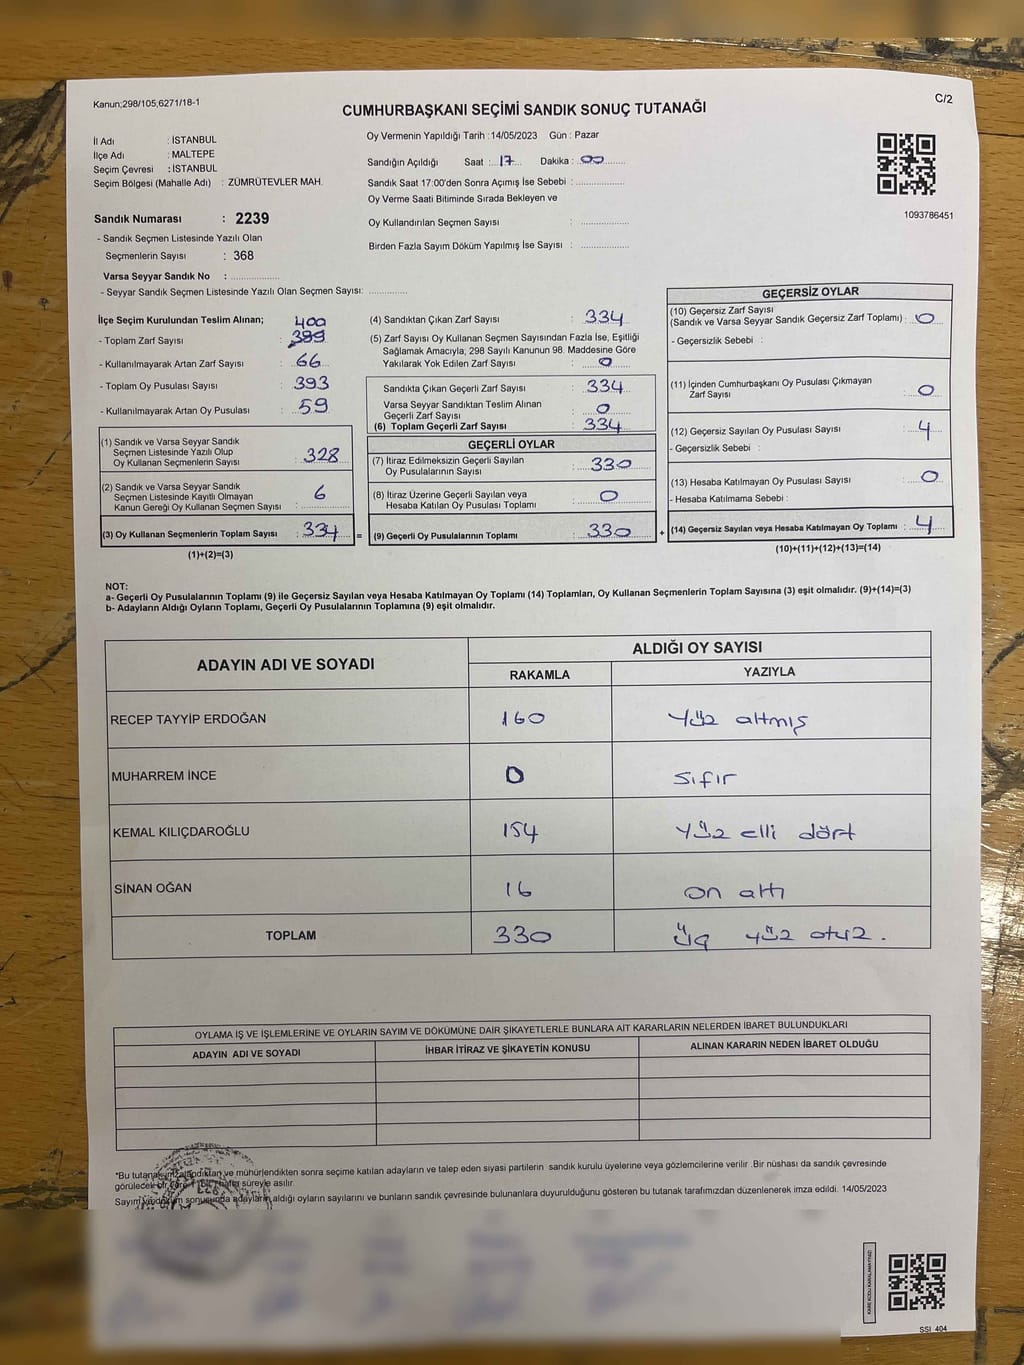 Kanun;298/105,6271/18-1
C/2
CUMHURBAŞKANI SEÇİMİ SANDIK SONUÇ TUTANAĞI
İl Adı : İSTANBUL
İlçe Adı : MALTEPE
Seçim Çevresi : İSTANBUL
Seçim Bölgesi (Mahalle Adı) : ZÜMRÜTEVLER MAH.
Sandık Numarası : 2239
- Sandık Seçmen Listesinde Yazılı Olan
Seçmenlerin Sayısı : 368
Varsa Seyyar Sandık No : ................
- Seyyar Sandık Seçmen Listesinde Yazılı Olan Seçmen Sayısı: ............
Oy Vermenin Yapıldığı Tarih :14/05/2023 Gün : Pazar
Sandığın Açıldığı Saat : 17 Dakika : 00
Sandık Saat 17:00'den Sonra Açımış İse Sebebi : ................
Oy Verme Saati Bitiminde Sırada Bekleyen ve
Oy Kullandırılan Seçmen Sayısı : ................
Birden Fazla Sayım Döküm Yapılmış İse Sayısı : ................
1093786451
İlçe Seçim Kurulundan Teslim Alınan;
400
- Toplam Zarf Sayısı : 399
- Kullanılmayarak Artan Zarf Sayısı : 66
- Toplam Oy Pusulası Sayısı : 393
- Kullanılmayarak Artan Oy Pusulası : 59
(1) Sandık ve Varsa Seyyar Sandık
Seçmen Listesinde Yazılı Olup
Oy Kullanan Seçmenlerin Sayısı : 328
(2) Sandık ve Varsa Seyyar Sandık
Seçmen Listesinde Kayıtlı Olmayan
Kanun Gereği Oy Kullanan Seçmen Sayısı : 6
(3) Oy Kullanan Seçmenlerin Toplam Sayısı : 334 =
(1)+(2)=(3)
(4) Sandıktan Çıkan Zarf Sayısı : 334
(5) Zarf Sayısı Oy Kullanan Seçmen Sayısından Fazla İse, Eşitliği
Sağlamak Amacıyla, 298 Sayılı Kanunun 98. Maddesine Göre
Yakılarak Yok Edilen Zarf Sayısı : 0
Sandıkta Çıkan Geçerli Zarf Sayısı : 334
Varsa Seyyar Sandıktan Teslim Alınan
Geçerli Zarf Sayısı : 0
(6) Toplam Geçerli Zarf Sayısı : 334
GEÇERLİ OYLAR
(7) İtiraz Edilmeksizin Geçerli Sayılan
Oy Pusulalarının Sayısı : 330
(8) İtiraz Üzerine Geçerli Sayılan veya
Hesaba Katılan Oy Pusulası Toplamı : 0
(9) Geçerli Oy Pusulalarının Toplamı : 330 +
GEÇERSİZ OYLAR
(10) Geçersiz Zarf Sayısı
(Sandık ve Varsa Seyyar Sandık Geçersiz Zarf Toplamı) : 0
- Geçersizlik Sebebi :
(11) İçinden Cumhurbaşkanı Oy Pusulası Çıkmayan
Zarf Sayısı : 0
(12) Geçersiz Sayılan Oy Pusulası Sayısı : 4
- Geçersizlik Sebebi :
(13) Hesaba Katılmayan Oy Pusulası Sayısı : 0
- Hesaba Katılmama Sebebi :
(14) Geçersiz Sayılan veya Hesaba Katılmayan Oy Toplamı : 4
(10)+(11)+(12)+(13)=(14)
NOT:
a- Geçerli Oy Pusulalarının Toplamı (9) ile Geçersiz Sayılan veya Hesaba Katılmayan Oy Toplamı (14) Toplamları, Oy Kullanan Seçmenlerin Toplam Sayısına (3) eşit olmalıdır. (9)+(14)=(3)
b- Adayların Aldığı Oyların Toplamı, Geçerli Oy Pusulalarının Toplamına (9) eşit olmalıdır.
ADAYIN ADI VE SOYADI ALDIĞI OY SAYISI
RAKAMLA YAZIYLA
RECEP TAYYİP ERDOĞAN 160 yüz altmış
MUHARREM İNCE 0 sıfır
KEMAL KILIÇDAROĞLU 154 yüz elli dört
SİNAN OĞAN 16 on altı
TOPLAM 330 üç yüz otuz.
OYLAMA İŞ VE İŞLEMLERİNE VE OYLARIN SAYIM VE DÖKÜMÜNE DAİR ŞİKAYETLERLE BUNLARA AİT KARARLARIN NELERDEN İBARET BULUNDUKLARI
ADAYIN ADI VE SOYADI İHBAR İTİRAZ VE ŞİKAYETİN KONUSU ALINAN KARARIN NEDEN İBARET OLDUĞU
*Bu tutanak ve mühürlendikten sonra seçime katılan adayların ve talep eden siyasi partilerin sandık kurulu üyelerine veya gözlemcilerine verilir .Bir nüshası da sandık çevresinde
görülecek bir süreyle asılır.
Sayım sonusunda adayların aldığı oyların sayılarını ve bunların sandık çevresinde bulunanlara duyurulduğunu gösteren bu tutanak tarafımızdan düzenlenerek imza edildi. 14/05/2023
SSI 404